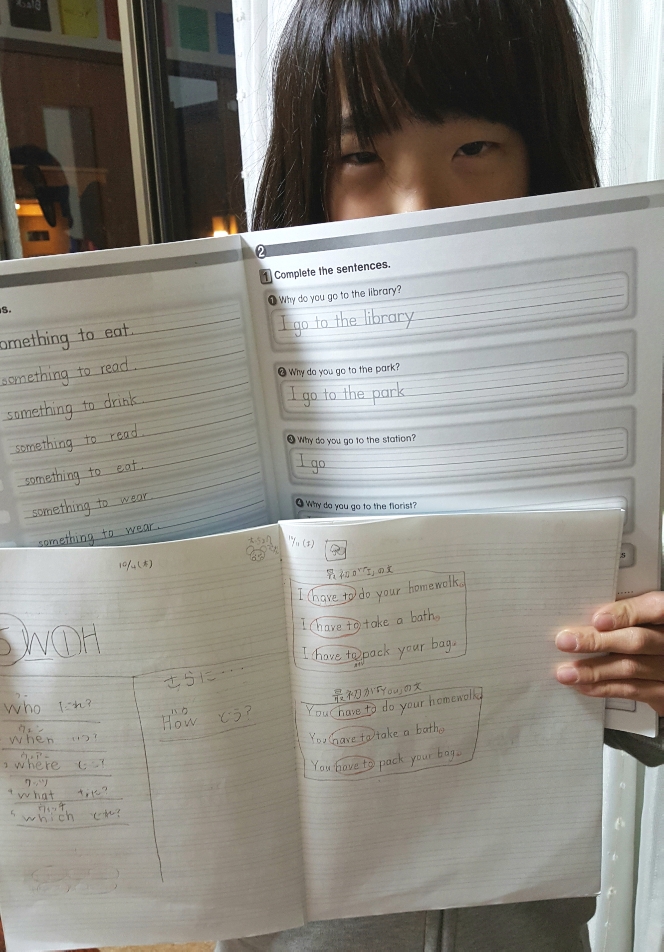 s.
omething to eat.
something to read.
something to drink.
something to read.
something to eat.
something to wear
something to wear.
2
1 Complete the sentences.
1 Why do you go to the library?
I go to the library
2 Why do you go to the park?
I go to the park
3 Why do you go to the station?
I go
4 Why do you go to the florist?
s
10/11(木)
5W1H
who だれ?
when いつ?
where どこ?
what なに?
which どれ?
さらに・・・・
How どう?
最初が「I」の文
I have to do your homework。
I have to take a bath。
I have to pack your bag。
最初が「You」の文
You have to do your homework。
You have to take a bath。
You have to pack your bag。